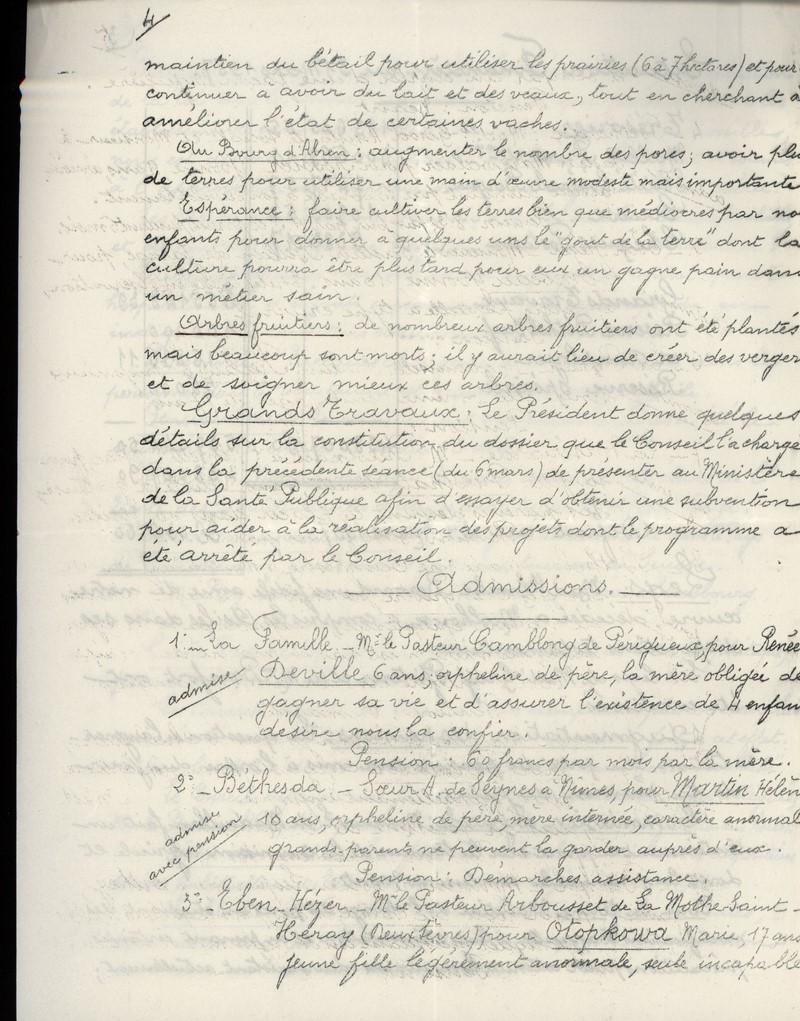 4
maintien du bétail pour utiliser les prairies (6 à 7 hectares) et pour
continuer à avoir du lait et des veaux, tout en cherchant à
améliorer l'état de certaines vaches.
Au Bourg d'Abren : augmenter le nombre des porcs; avoir plu
de terres pour utiliser une main d'œuvre modeste mais importante
Espérance : faire cultiver les terres bien que médiocres par no
enfants pour donner à quelques uns le "gout de la terre" dont la
culture pourra être plus tard pour eux un gagne pain dans
un métier sain.
Arbres fruitiers : de nombreux arbres fruitiers ont été plantés
mais beaucoup sont morts; il y aurait lieu de créer des verger
et de soigner mieux ces arbres.
Grands Travaux : Le Président donne quelques
détails sur la constitution du dossier que le Conseil l'a chargé
dans la précédente séance (du 6 mars) de présenter au Ministère
de la Santé Publique afin d'essayer d'obtenir une subvention
pour aider à la réalisation des projets dont le programme a
été arrêté par le Conseil.
Admissions.
1° La Famille _ Mr le Pasteur Camblong de Périgueux, pour Renée
Deville 6 ans, orpheline de père, la mère obligée de
admise
gagner sa vie et d'assurer l'existence de 4 enfan
désire nous la confier.
Pension : 60 francs par mois par la mère.
2° _ Béthesda _ Sœur A. de Seynes à Nîmes, pour Martin Hélèn
admise avec pension
10 ans, orpheline de père, mère internée, caractère anormal
grands-parents ne peuvent la garder auprès d'eux.
Pension : Démarches assistance.
3° _ Eben-Hézer _ Mr le Pasteur Arbousset de La Mothe-Saint-
Héray (Deux Sèvres) pour Otopkowa Marie, 17 ans
jeune fille légèrement anormale, seule incapable